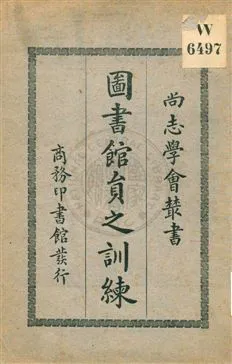 W
6497
尚志學會叢書
圖書館員之訓練
商務印書館發行